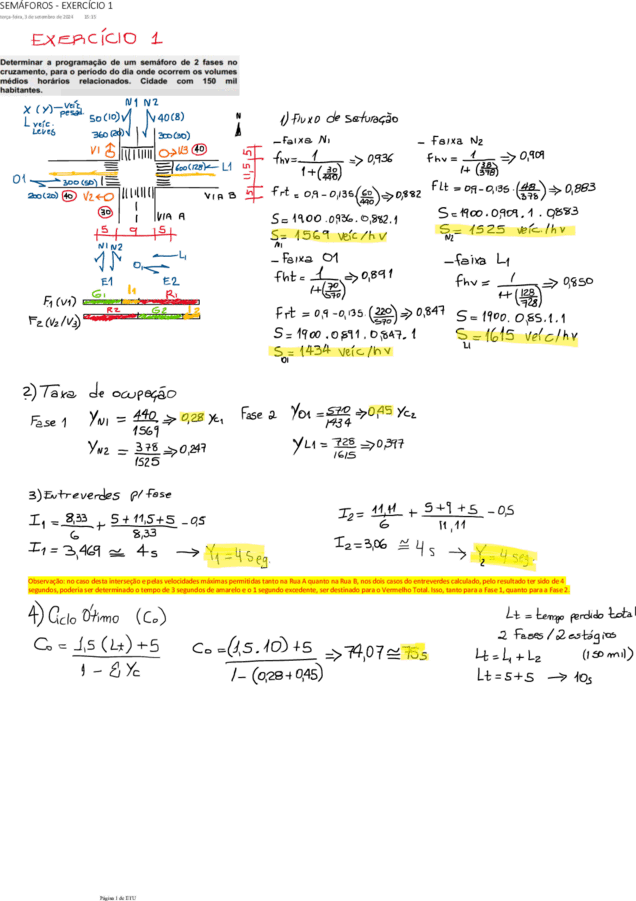 SEMÁFOROS - EXERCÍCIO 1
terça-feira, 3 de setembro de 2024 10:15
EXERCÍCIO 1
Determinar a programação de um semáforo de 2 fases no
cruzamento, para o período do dia onde ocorrem os volumes
médios horários relacionados. Cidade com 150 mil
habitantes.
X (Y) → veíc. pesad.
↳ veíc. Leves
N1 N2
50(10) 40(8)
360(20) 300(30)
N
V1 V3 40
600(128) L1
O1
300(50)
200(20) 40 V2
VIA B
30
VIA A
5 11,5 5
5 9 5
N1 N2
L1
O1
E1 E2
G1 I1 R1
F1 (V1)
R2 G2 I2
F2 (V2/V3)
1) Fluxo de saturação
- Faixa N1
fhv = 1 / 1+(30/440) => 0,936
Frt = 0,9 - 0,135.(60/440) => 0,882
S = 1900 . 0,936 . 0,882 . 1
S N1 = 1569 veíc/hv
- Faixa N2
Fhv = 1 / 1+(38/378) => 0,909
Flt = 0,9 - 0,135 . (48/378) => 0,883
S = 1900 . 0,909 . 1 . 0,883
S N2 = 1525 veíc/hv
- Faixa O1
fht = 1 / 1+(70/570) => 0,891
Frt = 0,9 - 0,135.(220/570) => 0,847
S = 1900 . 0,891 . 0,847 . 1
S O1 = 1434 veíc/hv
- faixa L1
fhv = 1 / 1+(128/728) => 0,850
S = 1900 . 0,85 . 1 . 1
S L1 = 1615 veíc/hv
2) Taxa de ocupação
Fase 1 YN1 = 440/1569 => 0,28 Yc1
YN2 = 378/1525 => 0,247
Fase 2 YO1 = 570/1434 => 0,45 Yc2
YL1 = 728/1615 => 0,397
3) Entreverdes p/ fase
I1 = 8,33/6 + 5+11,5+5/8,33 - 0,5
I1 = 3,469 ≅ 4s → Y1 = 4 Seg.
I2 = 11,11/6 + 5+9+5/11,11 - 0,5
I2 = 3,06 ≅ 4s → Y2 = 4 seg.
Observação: no caso desta interseção e pelas velocidades máximas permitidas tanto na Rua A quanto na Rua B, nos dois casos do entreverdes calculado, pelo resultado ter sido de 4
segundos, poderia ser determinado o tempo de 3 segundos de amarelo e o 1 segundo excedente, ser destinado para o Vermelho Total. Isso, tanto para a Fase 1, quanto para a Fase 2.
4) Ciclo Ótimo (Co)
Co = 1,5 (Lt) + 5 / 1 - Σ Yc
Co = (1,5 . 10) + 5 / 1 - (0,28 + 0,45) => 74,07 ≅ 75s
Lt = tempo perdido total
2 Fases / 2 estágios
Lt = L1 + L2 (150 mil)
Lt = 5 + 5 → 10s
Página 1 de ETU